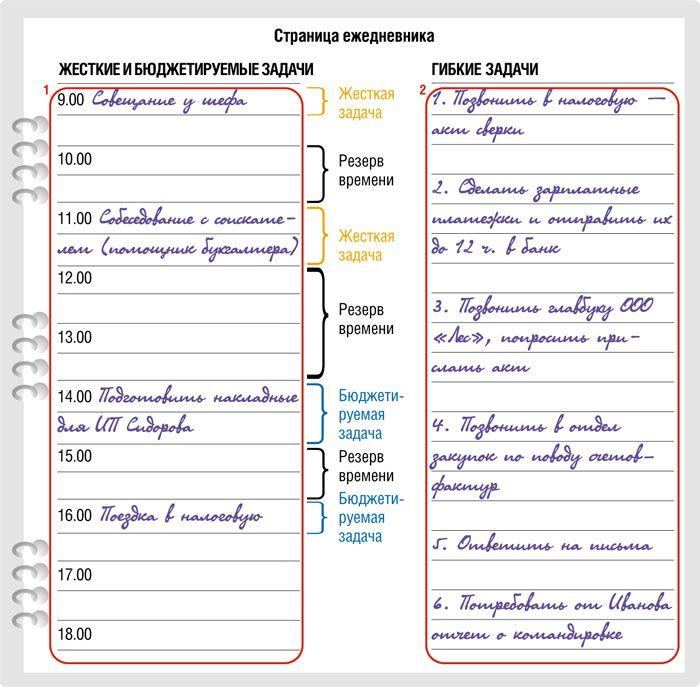 Страница ежедневника
ЖЕСТКИЕ И БЮДЖЕТИРУЕМЫЕ ЗАДАЧИ
1
9.00 Совещание у шефа
10.00
11.00 Собеседование с соискате-
лем (помощник бухгалтера)
12.00
13.00
14.00 Подготовить накладные
для ИП Сидорова
15.00
16.00 Поездка в налоговую
17.00
18.00
Жесткая
задача
Резерв
времени
Жесткая
задача
Резерв
времени
Бюджети-
руемая
задача
Резерв
времени
Бюджети-
руемая
задача
ГИБКИЕ ЗАДАЧИ
2
1. Позвонить в налоговую —
акт сверки
2. Сделать зарплатные
платежки и отправить их
до 12 ч. в банк
3. Позвонить главбуху ООО
«Лес», попросить при-
слать акт
4. Позвонить в отдел
закупок по поводу счетов-
фактур
5. Ответить на письма
6. Потребовать от Иванова
отчет о командировке